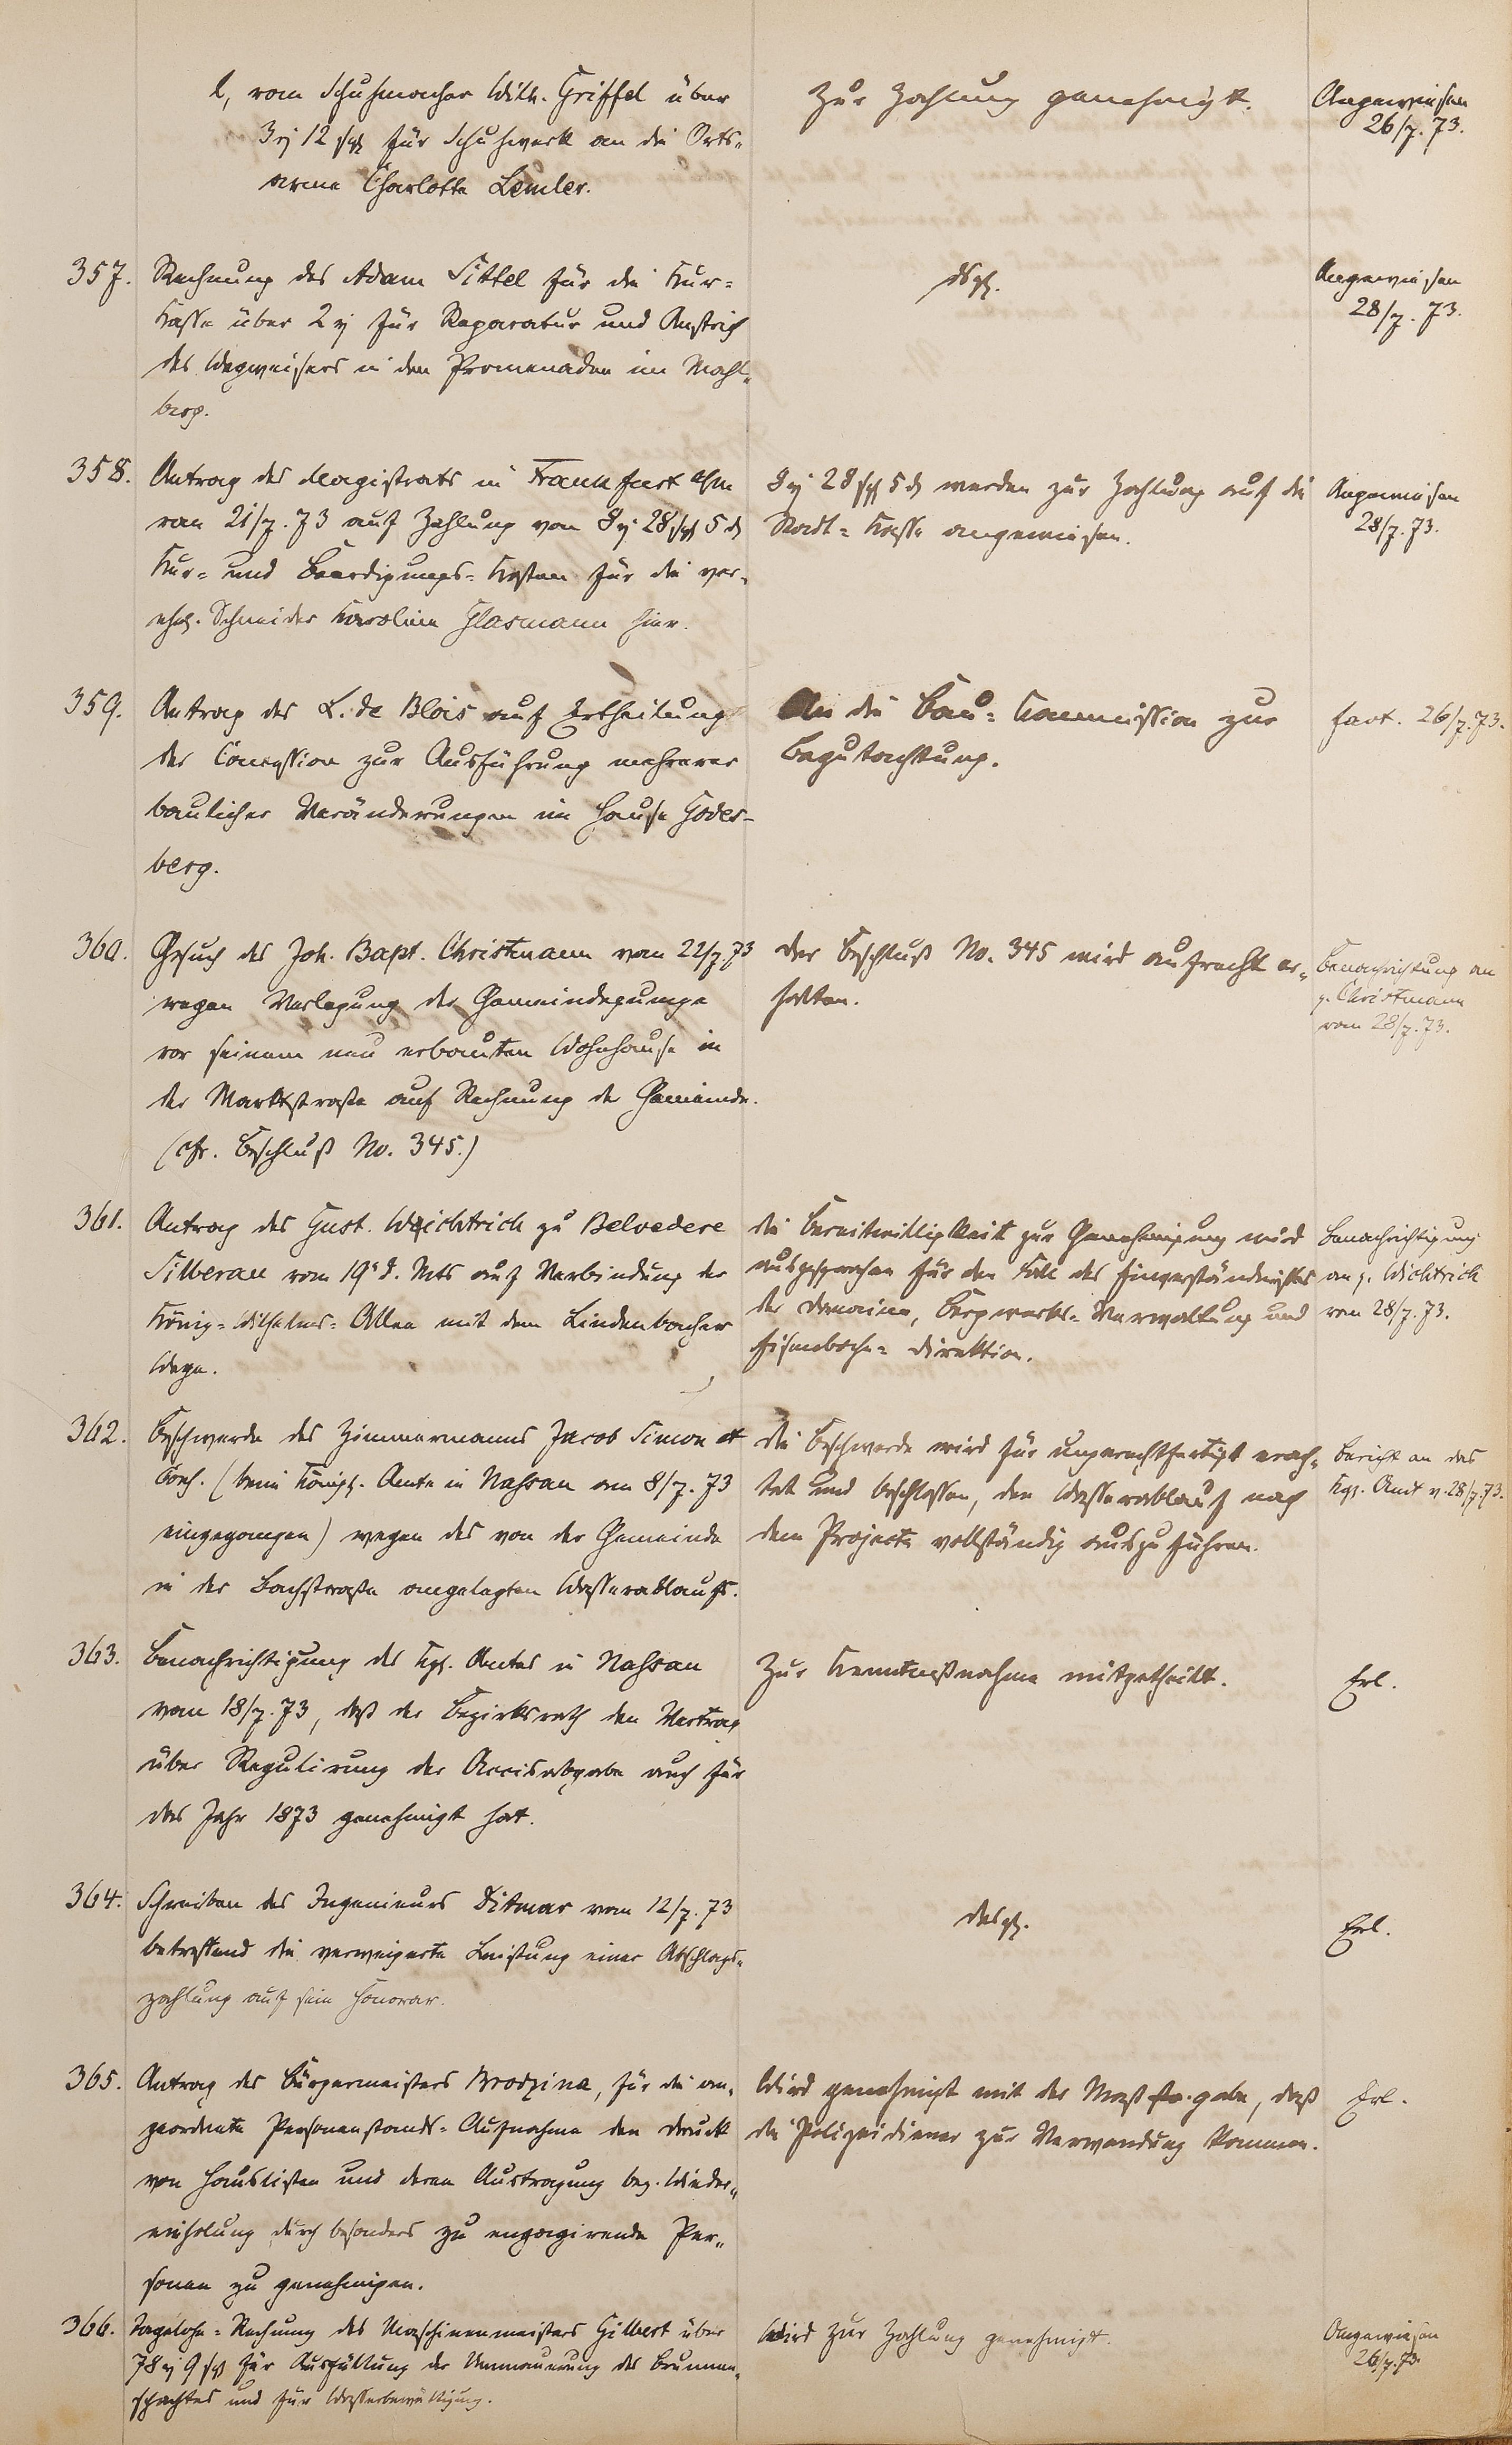 l, vom Schuhmacher Wilh. Griffel über
3 12 für Schuhwerk an die Orts-
arme Charlotte Lemler.
Zur Zahlung genehmigt.
Angewiesen
26/7. 73.
357. Rechnung des Adam Sittel für die Kur-
Kasse über 2 für Reparatur und Anstrich
des Wegweisers in den Promenaden im Mahl-
berg.
dsgl.
Angewiesen
28/7. 73.
358. Antrag des Magistrats in Frankfurt a/m
vom 21/7. 73 auf Zahlung von 8 28 5
Kur- und Beerdigungs-Kosten für die ver-
ehel. Schneider Karoline Glasmann hier.
8 28 5 werden zur Zahlung auf die
Stadt-Kasse angewiesen.
Angewiesen
28/7. 73.
359. Antrag des L. de Blois auf Ertheilung
der Concession zur Ausführung mehrerer
baulicher Veränderungen im Hause Godes-
berg.
An die Bau-Commission zur
Begutachtung.
fact. 26/7. 73.
360. Gesuch des Joh. Bapt. Christmann vom 22/7. 73
wegen Verlegung der Gemeindepumpe
vor seinem neu erbauten Wohnhause in
der Marktstraße auf Rechnung der Gemeinde.
(cfr. Beschluß No. 345.)
Der Beschluß No. 345 wird aufrecht er-
halten.
Benachrichtung an
p. Christmann
vom 28/7. 73.
361. Antrag des Gust. Wichtrich zu Belvedere
Silberau vom 19 d. Mts auf Verbindung der
König-Wilhelms-Allee mit dem Lindenbacher
Wege.
Die Bereitwilligkeit zur Genehmigung wird
ausgesprochen für den Fall des Einverständnisses
der Domaine, Bergwerks-Verwaltung und
Eisenbahn-Direktion.
Benachrichtigung
an p. Wichtrich
vom 28/7. 73.
362. Beschwerde des Zimmermanns Jacob Simon et
Cons. (beim Königl. Amte in Nassau am 8/7. 73
eingegangen) wegen des von der Gemeinde
in der Bachstraße angelegten Wasserablaufs.
Die Beschwerde wird für ungerechtfertigt erach-
tet und beschlossen, den Wasserablauf nach
dem Projecte vollständig auszuführen.
Bericht an das
Kgl. Amt v. 28/7. 73.
363. Benachrichtigung des Kgl. Amtes in Nassau
vom 18/7. 73, daß der Bezirksrath den Vertrag
über Regulirung der Accisabgabe auch für
das Jahr 1873 genehmigt hat.
Zur Kenntnißnahme mitgetheilt.
Erl.
364. Schreiben des Ingenieurs Ditmar vom 12/7. 73
betreffend die verweigerte Leistung einer Abschlags-
zahlung auf sein Honorar.
desgl.
Erl.
365. Antrag des Bürgermeisters Brodzina, für die an-
geordnete Personenstands-Aufnahme den Druck
von Hauslisten und deren Austragung bez. Wieder-
einholung durch besonders zu engagirende Per-
sonen zu genehmigen.
Wird genehmigt mit der Maßgabe, daß
die Polizeidiener zur Verwendung kommen.
Erl.
366. Tagelohn-Rechnung des Maschinenmeisters Gilbert über
78 9 für Ausfüllung der Ummauerung des Brunnen-
schachtes und für Wasserbewältigung.
Wird zur Zahlung genehmigt.
Angewiesen
26/7. 73.